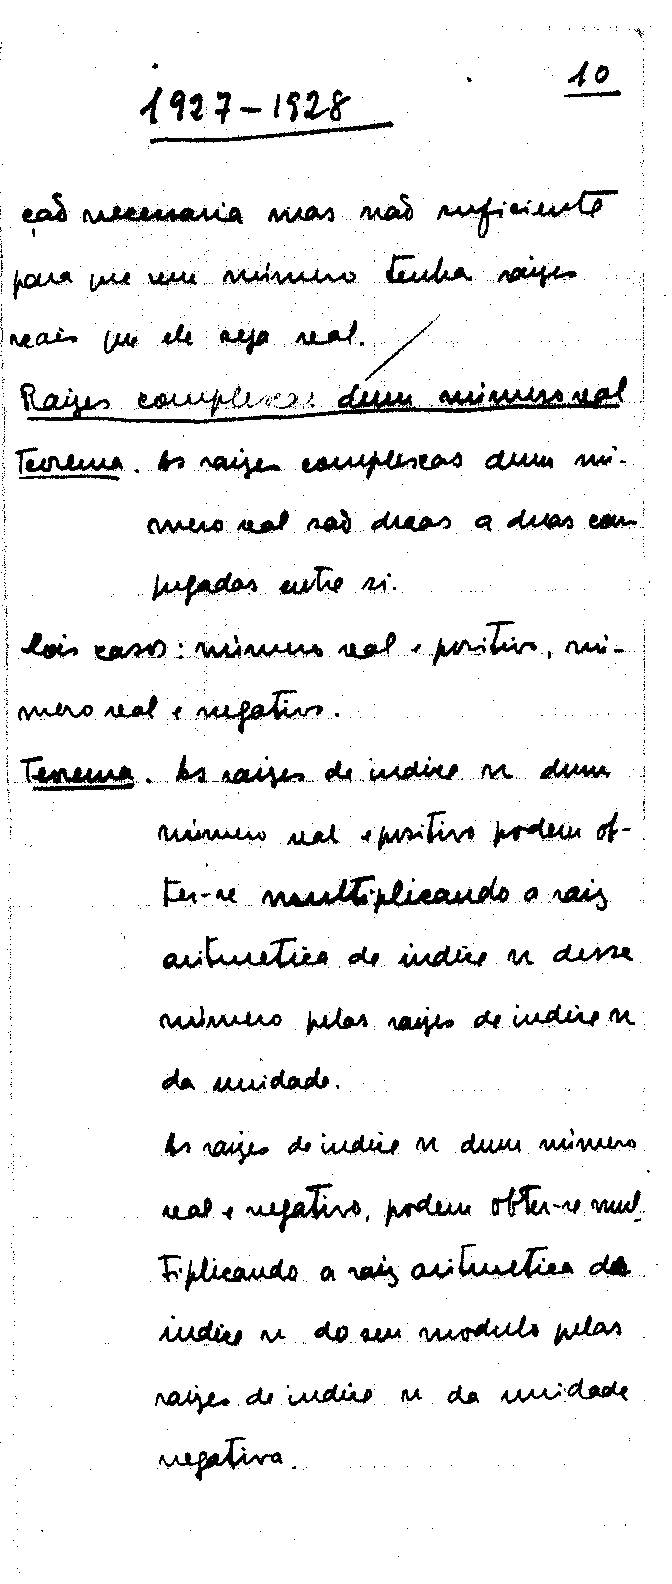 10
1927-1928
ção necessaria mas não suficiente
para que um número tenha raizes
reais que ele seja real.
Raizes complexas dum número real
Teorema. As raizes complexas dum nú-
mero real são duas a duas con
jugadas entre si.
Dois casos: número real e positivo, nú-
mero real e negativo.
Teorema. As raizes de indice n dum
número real e positivo podem ob-
ter-se multiplicando a raiz
aritmetica de indice n desse
número pelas raizes de indice n
da unidade.
As raizes de indice n dum número
real e negativo, podem obter-se mul-
tiplicando a raiz aritmetica de
indice n do seu modulo pelas
raizes de indice n da unidade
negativa.